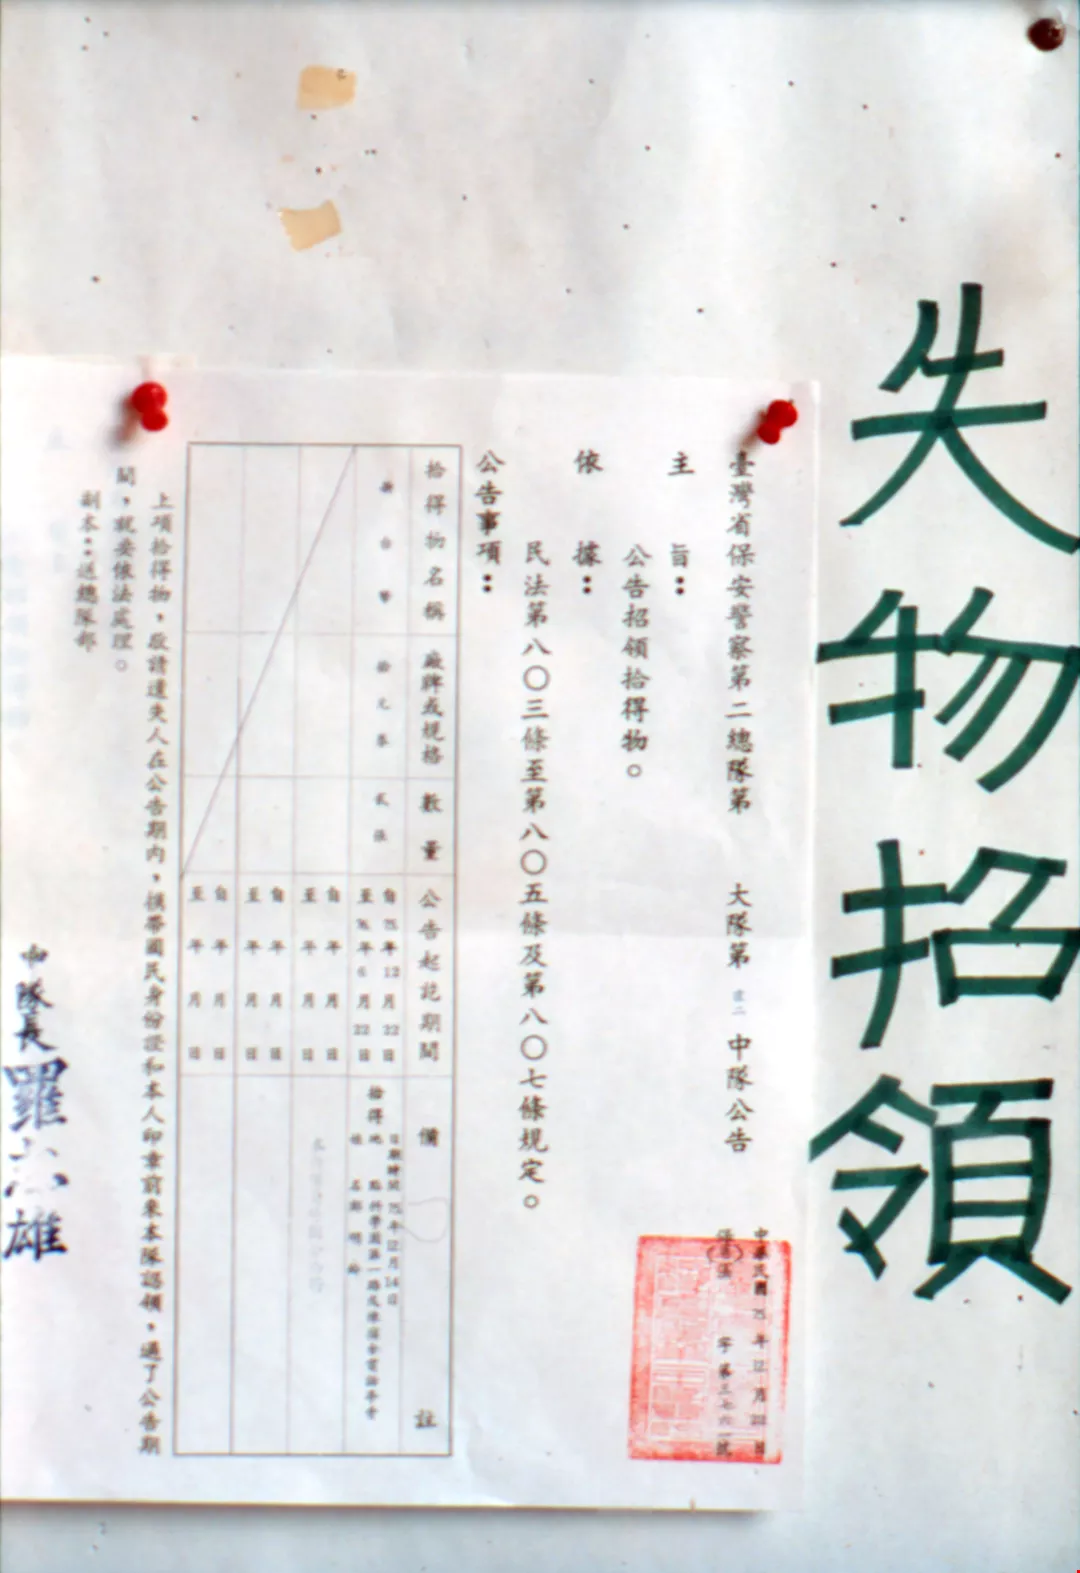 失物招領
中華民國75年12月22日
字第三七六號
臺灣省保安警察第二總隊第 大隊第 中隊公告
主旨：
公告招領拾得物。
依據：
民法第八〇三條至第八〇五條及第八〇七條規定。
公告事項：
拾得物名稱 廠牌或規格 數量 公告起訖期間 備註
新台幣 拾元券 貳張 自75年12月22日
至76年6月22日
拾得 日期時間 75年12月14日
地點
姓名
自 年 月 日
至 年 月 日
自 年 月 日
至 年 月 日
自 年 月 日
至 年 月 日
上項拾得物，敬請遺失人在公告期內，携帶國民身份證和本人印章前來本隊認領，過了公告期
間，就要依法處理。
副本：送總隊部
中隊長 羅 雄